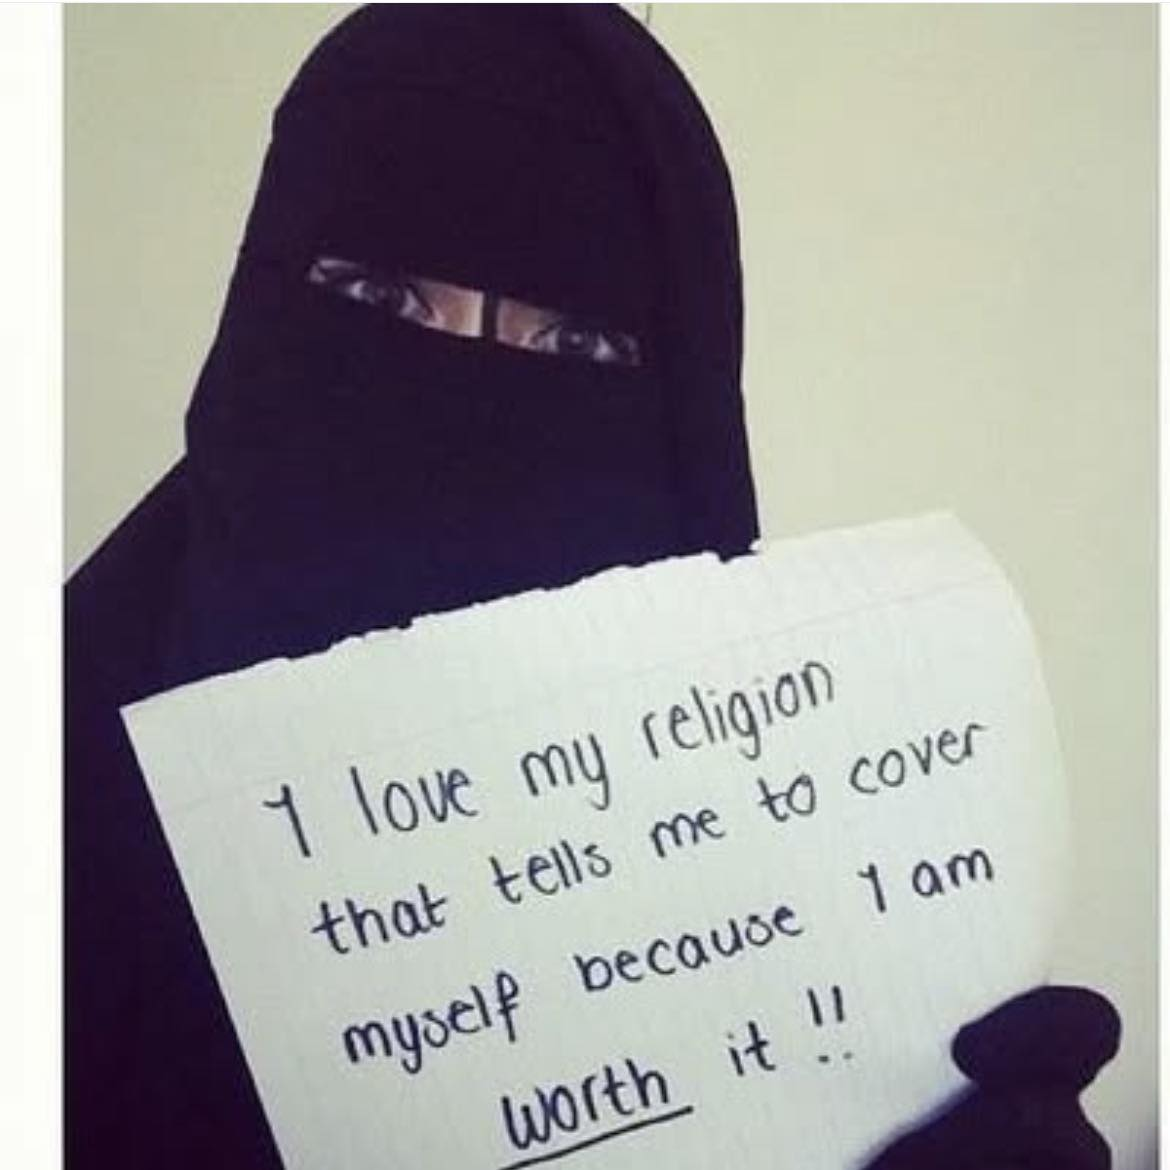 I love my religion
that tells me to cover
myself because I am
worth it !!